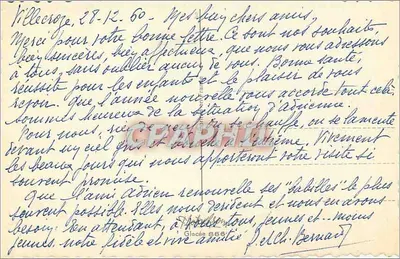 Villecroze, 28-12-60 - Mes biens chers amis,
Merci pour votre bonne lettre. Ce sont nos souhaits,
bien sincères, bien affectueux, que nous vous adressons
à tous, sans oublier aucun de vous. Bonne santé,
réussite pour les enfants et le plaisir de vous
revoir. Que l'année nouvelle vous accorde tout cela.
sommes heureux de la situation d'adrienne.
Pour nous, chauffe, on se lamente
devant un ciel gris et Vivement
les beaux jours qui nous apporteront votre visite si
souvent promise.
Que l'ami adrien renouvelle ses "babilles" le plus
souvent possible. Elles nous rendent et nous en avons
besoin. En attendant, à vous tous, jeunes et.. moins
jeunes, notre fidèle et vive amitié Bernard
CPHRAPHI